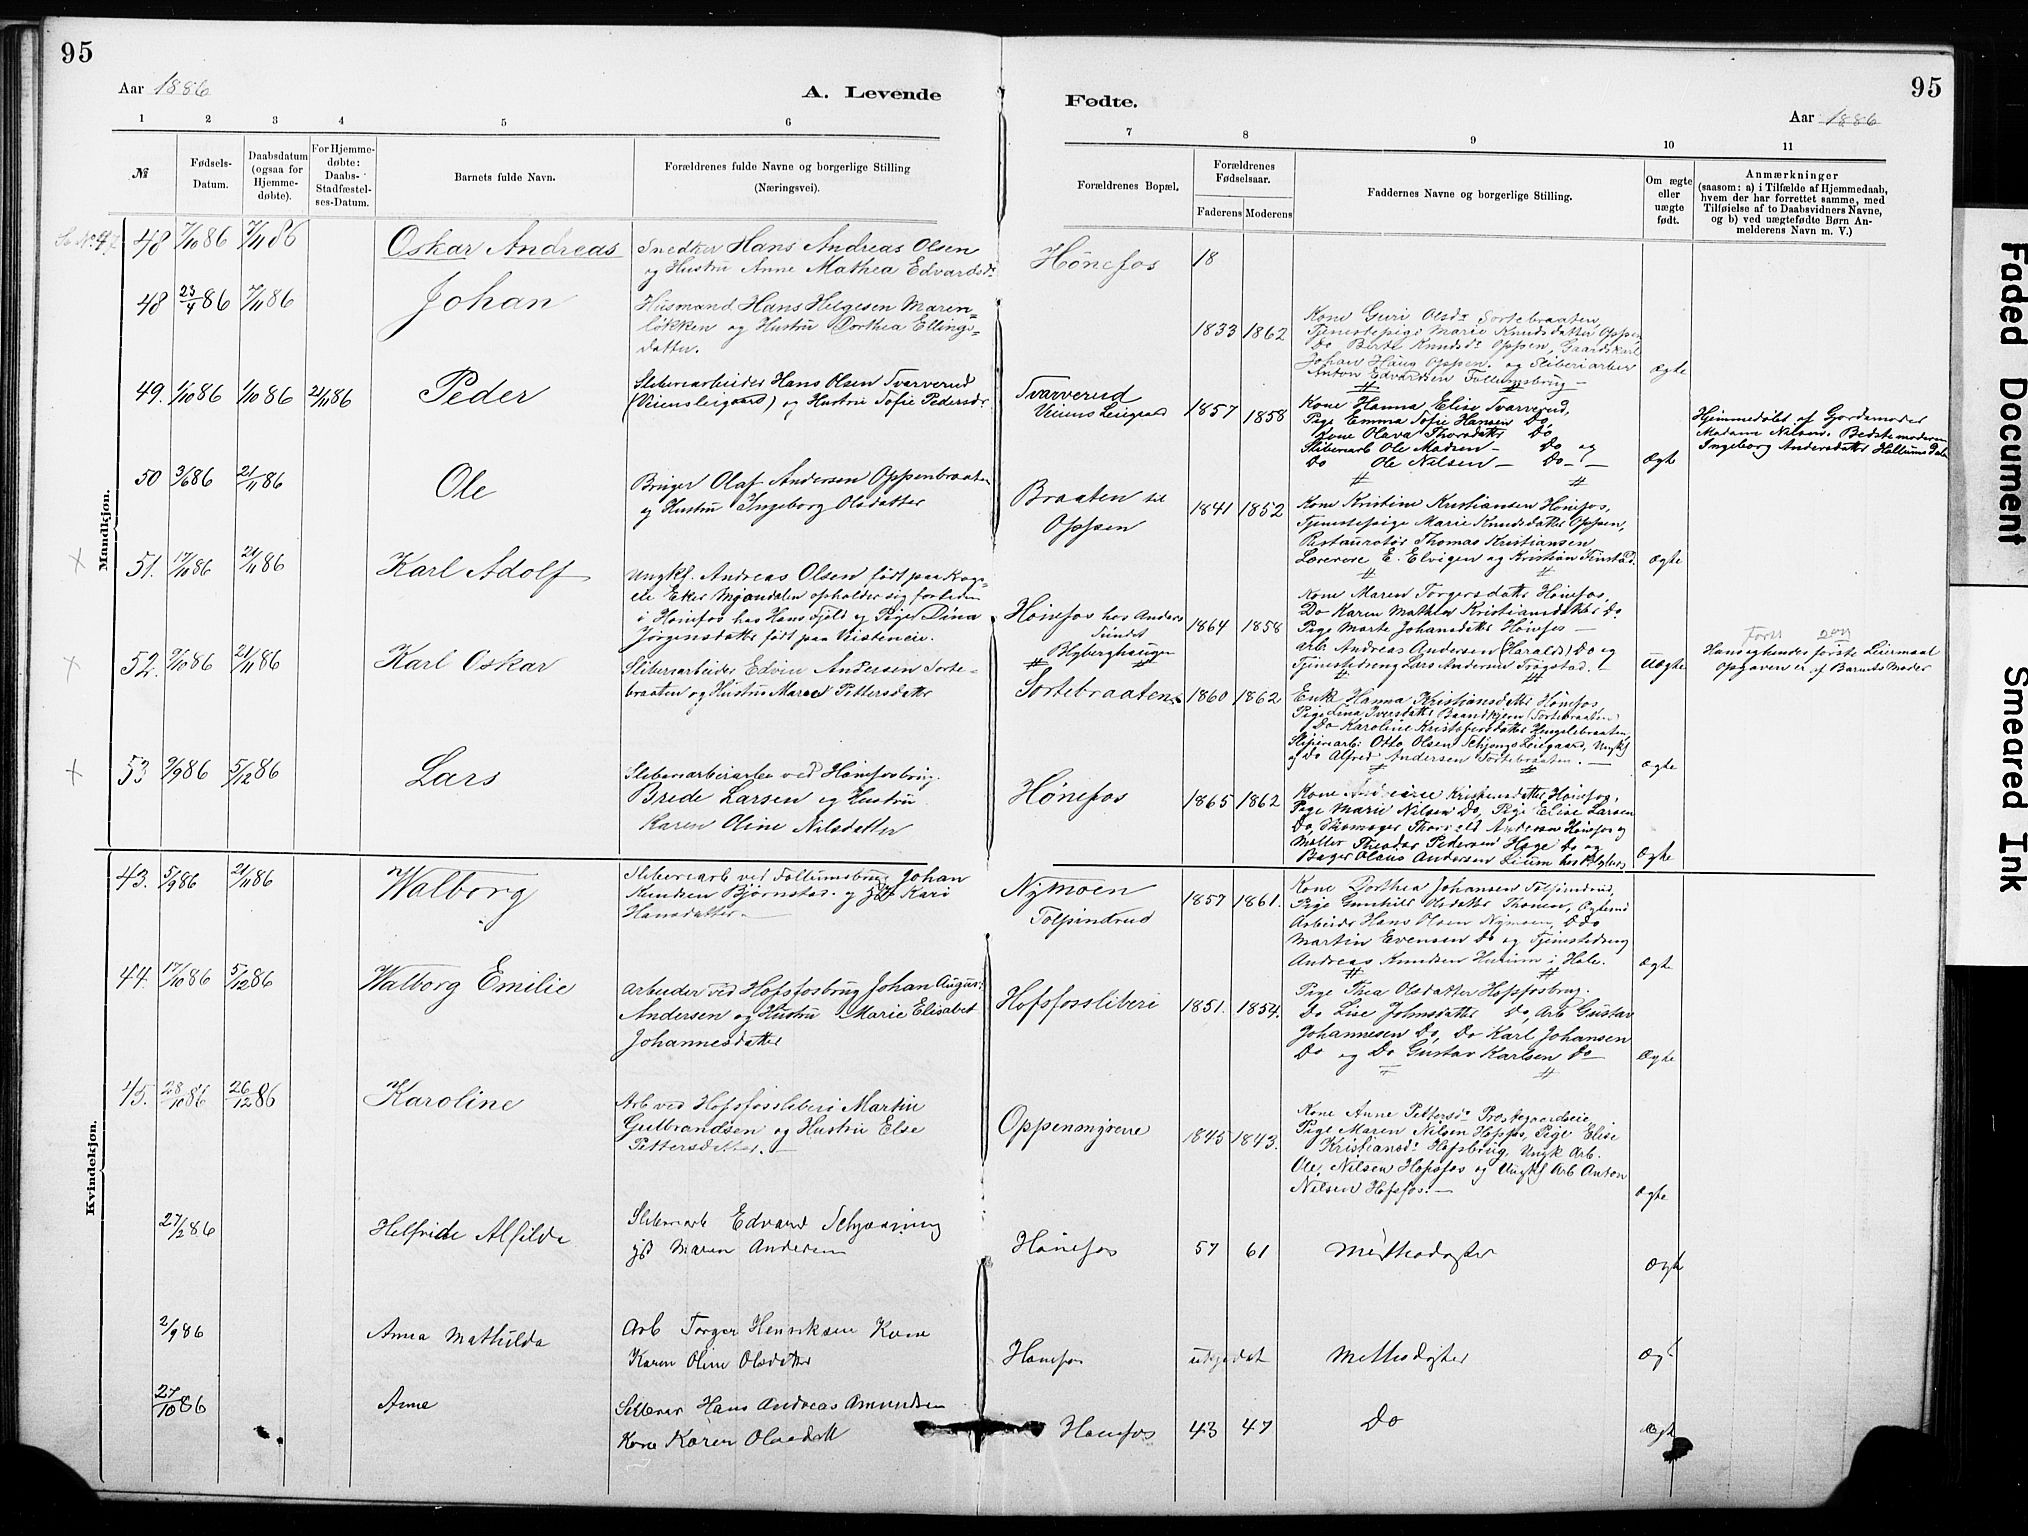 95
Aar 1886
A. Levende
1 2 3 4 5 6
№
Fødsels-Datum.
Daabsdatum (ogsaa for Hjemme-døbte).
For Hjemme-døbte: Daabs-Stadfæstel-ses-Datum.
Barnets fulde Navn.
Forældrenes fulde Navne og borgerlige Stilling
(Næringsvei).
Mandkjøn.
48 7/10 86 7/11 86
Oskar Andreas
Snedker Hans Andreas Olsen
og Hustru Anne Mathea Edvardsdr
48 23/4 86 7/11 86
Johan
Husmand Hans Helgesen Maren-
løkken og Hustru Dorthea Ellings-
datter.
49. 1/10 86 1/10 86 21/11 86
Peder
Sliberiarbeider Hans Olsen Tvarverud
(Veiensleigaard) og Hustru Tofie Pedersdr
50 3/6 86 21/11 86
Ole
Bruger Olaf Andersen Oppenbraaten
og Hustru Ingeborg Olsdatter
51. 17/10 86 21/11 86
Karl Adolf
Ungkf. Andreas Olsen født paa
Eker Mjøndalen opholder sig fortiden
i Hønefos hos Hans Fjeld og Pige Dina
Jørgensdatter født paa
52. 9/10 86 21/11 86
Karl Oskar
Sliberiarbeider Edvin Andersen Sorte-
braaten og Hustru Maren Pettersdatter
53 9/9 86 5/12 86
Lars
ved Hønefosbrug.
Brede Larsen og Hustru
Karen Oline Nilsdatter
Kvindekjøn.
43. 5/9 86 21/11 86
Walborg
Sliberiarb ved Follumsbrug Johan
Knudsen Bjørnstad og Kari
Hansdatter
44. 17/10 86 5/12 86
Walborg Emilie
Arbeider ved Hofsfosbrug Johan August
Andersen og Hustru Marie Elisabet
Johannesdatter
45. 28/10 86 26/12 86
Karoline
Arb ved Hofsfossliberi Martin
Gulbrandsen og Hustru Else
Pettersdatter.
27/2 86
Helfride Alfilda
Sliberiarb Edvard
Maren Andersen
2/9 86
Anna Mathilda
Arb Torger Henriksen Kone
Karen Oline Olsdatter
27/10 86
Anne
Hans Andreas Amundsen
Kone Karen
95
Fødte.
Aar 1886
7 8 9 10 11
Forældrenes Bopæl.
Forældrenes Fødselsaar.
Faderens Moderens
Faddernes Navne og borgerlige Stilling.
Om ægte eller uægte født.
Anmærkninger
(saasom: a) i Tilfælde af Hjemmedaab, hvem der har forrettet samme, med Tilføielse af to Daabsvidners Navne, og b) ved uægtefødte Børn Anmelderens Navn m. V.)
Hønefos 18
1833 1862
Kone Guri Olsdr Sortebraaten
Tjenestepige Marie Knudsdatter Oppen
Do Berte Knudsdr Oppen, Gaardskarl
Johan Hans Oppen og Sliberiarbei
Anton Edvardsen Follumsbrug
Ægte
Tvarverud
Veiens Leigaard
1857 1858
Kone Hanna Elise Tvarverud,
Pige Emma Tofie Hansen Do,
Kone Olava Thorsdatter Do,
Sliberiarb Ole Madsen Do og
Do Ole Nilsen Do
Ægte
Hjemmedøbt af Gjordemoder
Madam Nilsen. Bedstemoderen
Ingeborg Andersdatter
Braaten til
Oppen
1841 1852
Kone Kristine Kristiansen Hønefos,
Tjenestepige Marie Knudsdatter Oppen,
Restauratør Thomas Kristiansen
Lærerere E. Elvigen og Kristian Finstad.
Ægte
Hønefos hos Anders
Blyberghaugen
1864 1858
Kone Maren Torgersdatter Hønefos,
Do Karen Mathea Kristiansdatter Do.
Pige Marte Johansdatter Hønefos
Arb Andreas Andersen (Harald) Do og
Tjenestedreng Lars Andersen Trøgstad.
Uægte
Hans og hendes første Leiermaal
Opgaven er af Barnets Moder
Sortebraaten
1860 1862
Enke Hanna Kristiansdatter Hønefos,
Pige Lina Iversdatter
Do Karoline Kristofersdatter Hengslebraaten,
Otto Olsen
Do Alfred Andersen Sortebraaten.
Ægte
Hønefos
1865 1862
Kone Kristensdatter Hønefos,
Pige Marie Nilsen Do, Pige Elise Larsen
Do, Skomager Thorvald Andersen Hønefos og
Møller Theodor Pedersen Hage Do og
Bager Olaus Andersen
Ægte
Nymoen
Tolpinrud
1857 1861.
Kone Dorthea Johansen Tolpinrud,
Pige Gunhild Olsdatter
Arbeider Hans Olsen Nymoen, Do
Martin Evensen Do og Tjenestedreng
Andreas Knudsen Hurum i Hole.
Ægte
Hofsfossliberi
1851. 1854.
Pige Thea Olsdatter Hofsfosbrug.
Do Lise Johnsdatter Do, Arb Gustav
Johannesen Do, Do Karl Johansen
Do og Do Gustav Karlsen Do
Ægte
Oppenmyrene
1845 1843.
Kone Anne Pettersdr Præstegaardseie,
Pige Maren Nilsen Hofsfos, Pige Elise
Kristiansdr Hofsbrug, Ungk Arb.
Ole Nilsen Hofsfos og Ungkf Arb Anton
Nilsen Hofsfos.
Ægte
Hønefos 57 61 Methodister Ægte
Hønefos Methodister Ægt
Hønefos 43 47 Do Ægte
Faded Document
Smeared Ink